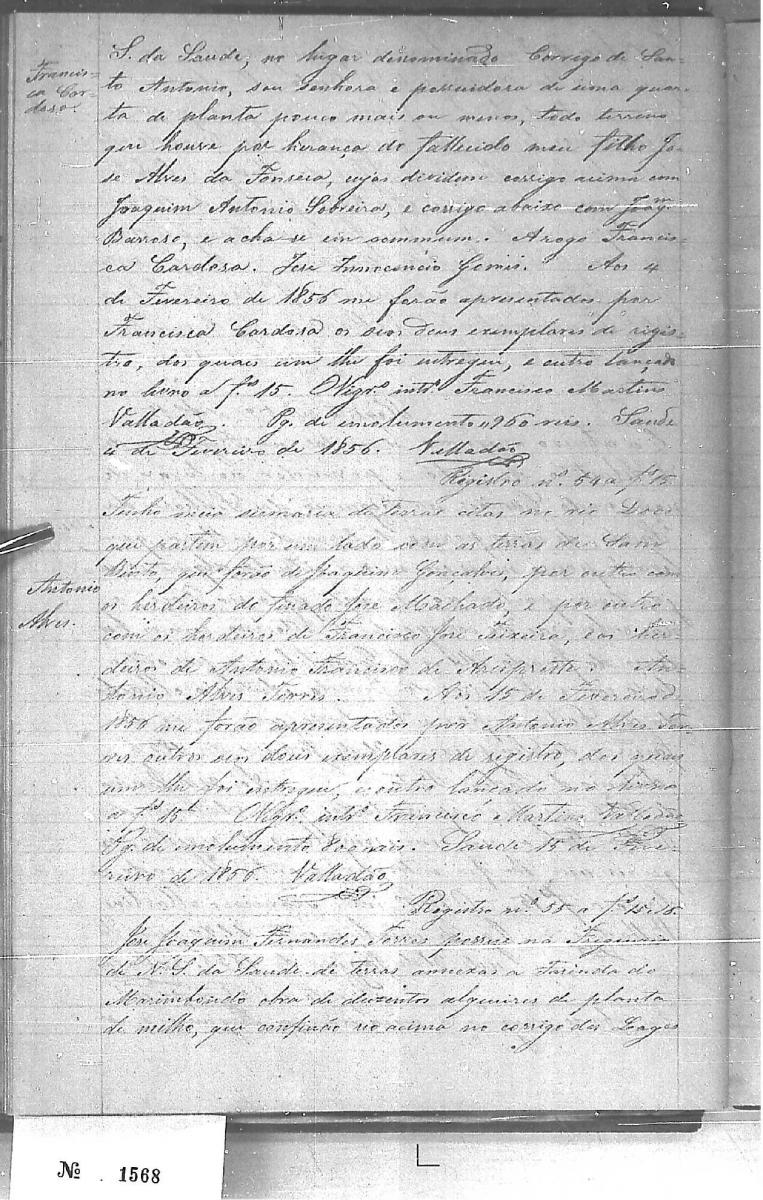 Francis-
ca Car-
doso.
S. da Saude, no lugar denominado Corrigo de San-
to Antonio, sou senhora e possuidora de uma quar-
ta de planta pouco mais ou menos, todo terreno
que houve por herança do fallecido meu filho Jo-
se Alves da Fonseca, cujas dividem corrigo acima com
Joaquim Antonio Sobreira, e corrigo abaixo com Joaqm
Barroso, e acha-se em commum. Arogo Francis-
ca Cardosa. Jose Innocencio Gomis. Aos 4
de Fevereiro de 1856 me forão apresentados por
Francisca Cardosa os seos dous exemplares de regis-
tro, dos quais um lhe foi entregue, e outro lançado
no livro a fs 15. O Vigrº intº Francisco Martins
Valladão. Pg. de emolumento 960 reis. Saude
4 de Fevereiro de 1856. Valladão
Registro nº 54 a fs 15
Antonio
Alves.
Tenho meia sismaria de terras citas no rio Doce
que partem por um lado com as terras de Sam
que forão de Joaquim Gonçalves, por outro com
os herdeiros do finado José Machado, e por outro
com os herdeiros de Francisco José Teixeira, e os her-
deiros de Antonio Francisco de An-
tonio Alves Torres. Aos 15 de Fevereiro d
1856 me forão apresentados por Antonio Alves Tor-
res outros dous exemplares de registro, dos quais
um lhe foi entregue, e outro lançado no livro
a fs 15 O Vigrº intº Francisco Martins Valladão
Pg. de emolumento 800 reis. Saude 15 de Feve-
reiro de 1856. Valladão
Registro nº 55 a fs 15 e 16.
José Joaquim Fernandes Torres possue na Freguesia
de N. S. da Saude de terras annexas a Fazenda do
Marimbondo obra de duzentos alqueires de planta
de milho, que confinão rio acima no corrigo das Lages
Nº 1568